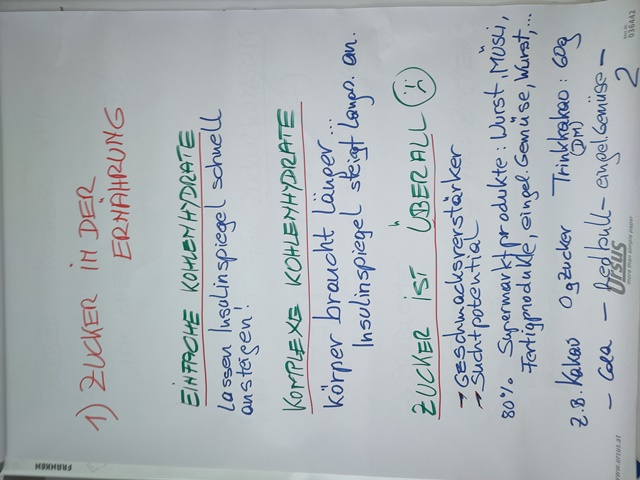 1) ZUCKER IN DER
ERNÄHRUNG
EINFACHE KOHLENHYDRATE
lassen Insulinspiegel schnell
ansteigen!
KOMPLEXE KOHLENHYDRATE
Körper braucht länger...
Insulinspiegel steigt langs. an.
ZUCKER IST ÜBERALL
→ GESCHMACKSVERSTÄRKER
→ Suchtpotential
80% Supermarktprodukte: Wurst, MÜSLI,
Fertigprodukte, eingel. Gemüse, Wurst,...
z.B. Kakao 0g zucker Trinkkakao: 60g
(DM)
- Cola - Redbull - eingel Gemüse -
2
FRANKEN
www.ursus.at
Ursus
036443